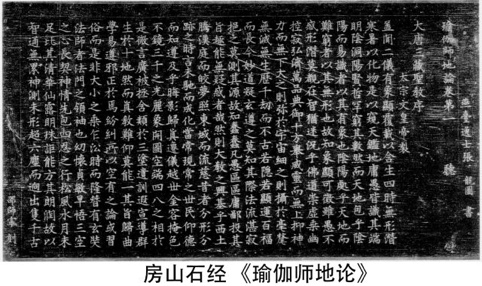 瑜伽師地論卷第一
大唐三藏聖教序
太宗文皇帝製
蓋聞二儀有象顯覆載以含生四時無形潛
寒暑以化物是以窺天鑑地庸愚皆識其端
明陰洞陽賢哲罕窮其數然而天地苞乎陰
陽而易識者以其有象也陰陽處乎天地而
難窮者以其無形也故知象顯可徵雖愚不
惑形潛莫覩在智猶迷況乎佛道崇虛乘幽
控寂弘濟萬品典御十方舉威靈而無上抑神
力而無下大之則彌於宇宙細之則攝於毫釐
無滅無生歷千劫而不古若隱若顯運百福
而長今妙道凝玄遵之莫知其際法流湛寂
挹之莫測其源故知蠢蠢凡愚區區庸鄙投其
旨趣能無疑惑者哉然則大教之興基乎西土
騰漢庭而皎夢照東域而流慈昔者分形分
跡之時言未馳而成化當常現常之世民仰德
而知遵及乎晦影歸真遷儀越世金容掩色
不鏡三千之光麗象開圖空端四八之相於
是微言廣被拯含類於三塗遺訓遐宣導群
生於十地然而真教難仰莫能一其旨歸曲
學易遵邪正於焉紛糾所以空有之論或習
俗而是非大小之乘乍沿時而隆替有玄奘
法師者法門之領袖也幼懷貞敏早悟三空
之心長契神情先包四忍之行松風水月未
足比其清華仙露明珠詎能方其朗潤故以
智通無累神測未形超六塵而迥出隻千古
房山石经《瑜伽师地论》